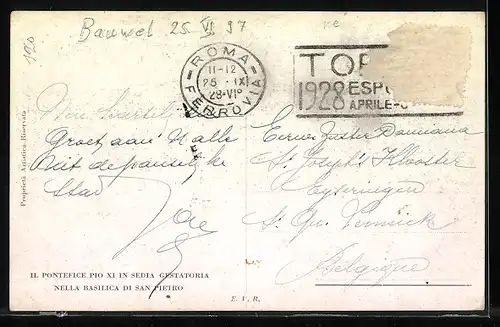 Bauwel 25 VI 97
120
ROMA
FERROVIA
11-12
25 · IX
28·VI°
TOR
1928 ESPO
APRILE-O
Proprietà Artistica-Riservata
Groet aan U alle
Uit de
Stad
Eerw. Zuster Damiana
St Joseph's Klooster
Eyseringen
St Qu. Lennick
Belgique
IL PONTEFICE PIO XI IN SEDIA GESTATORIA
NELLA BASILICA DI SAN PIETRO
E. V. R.